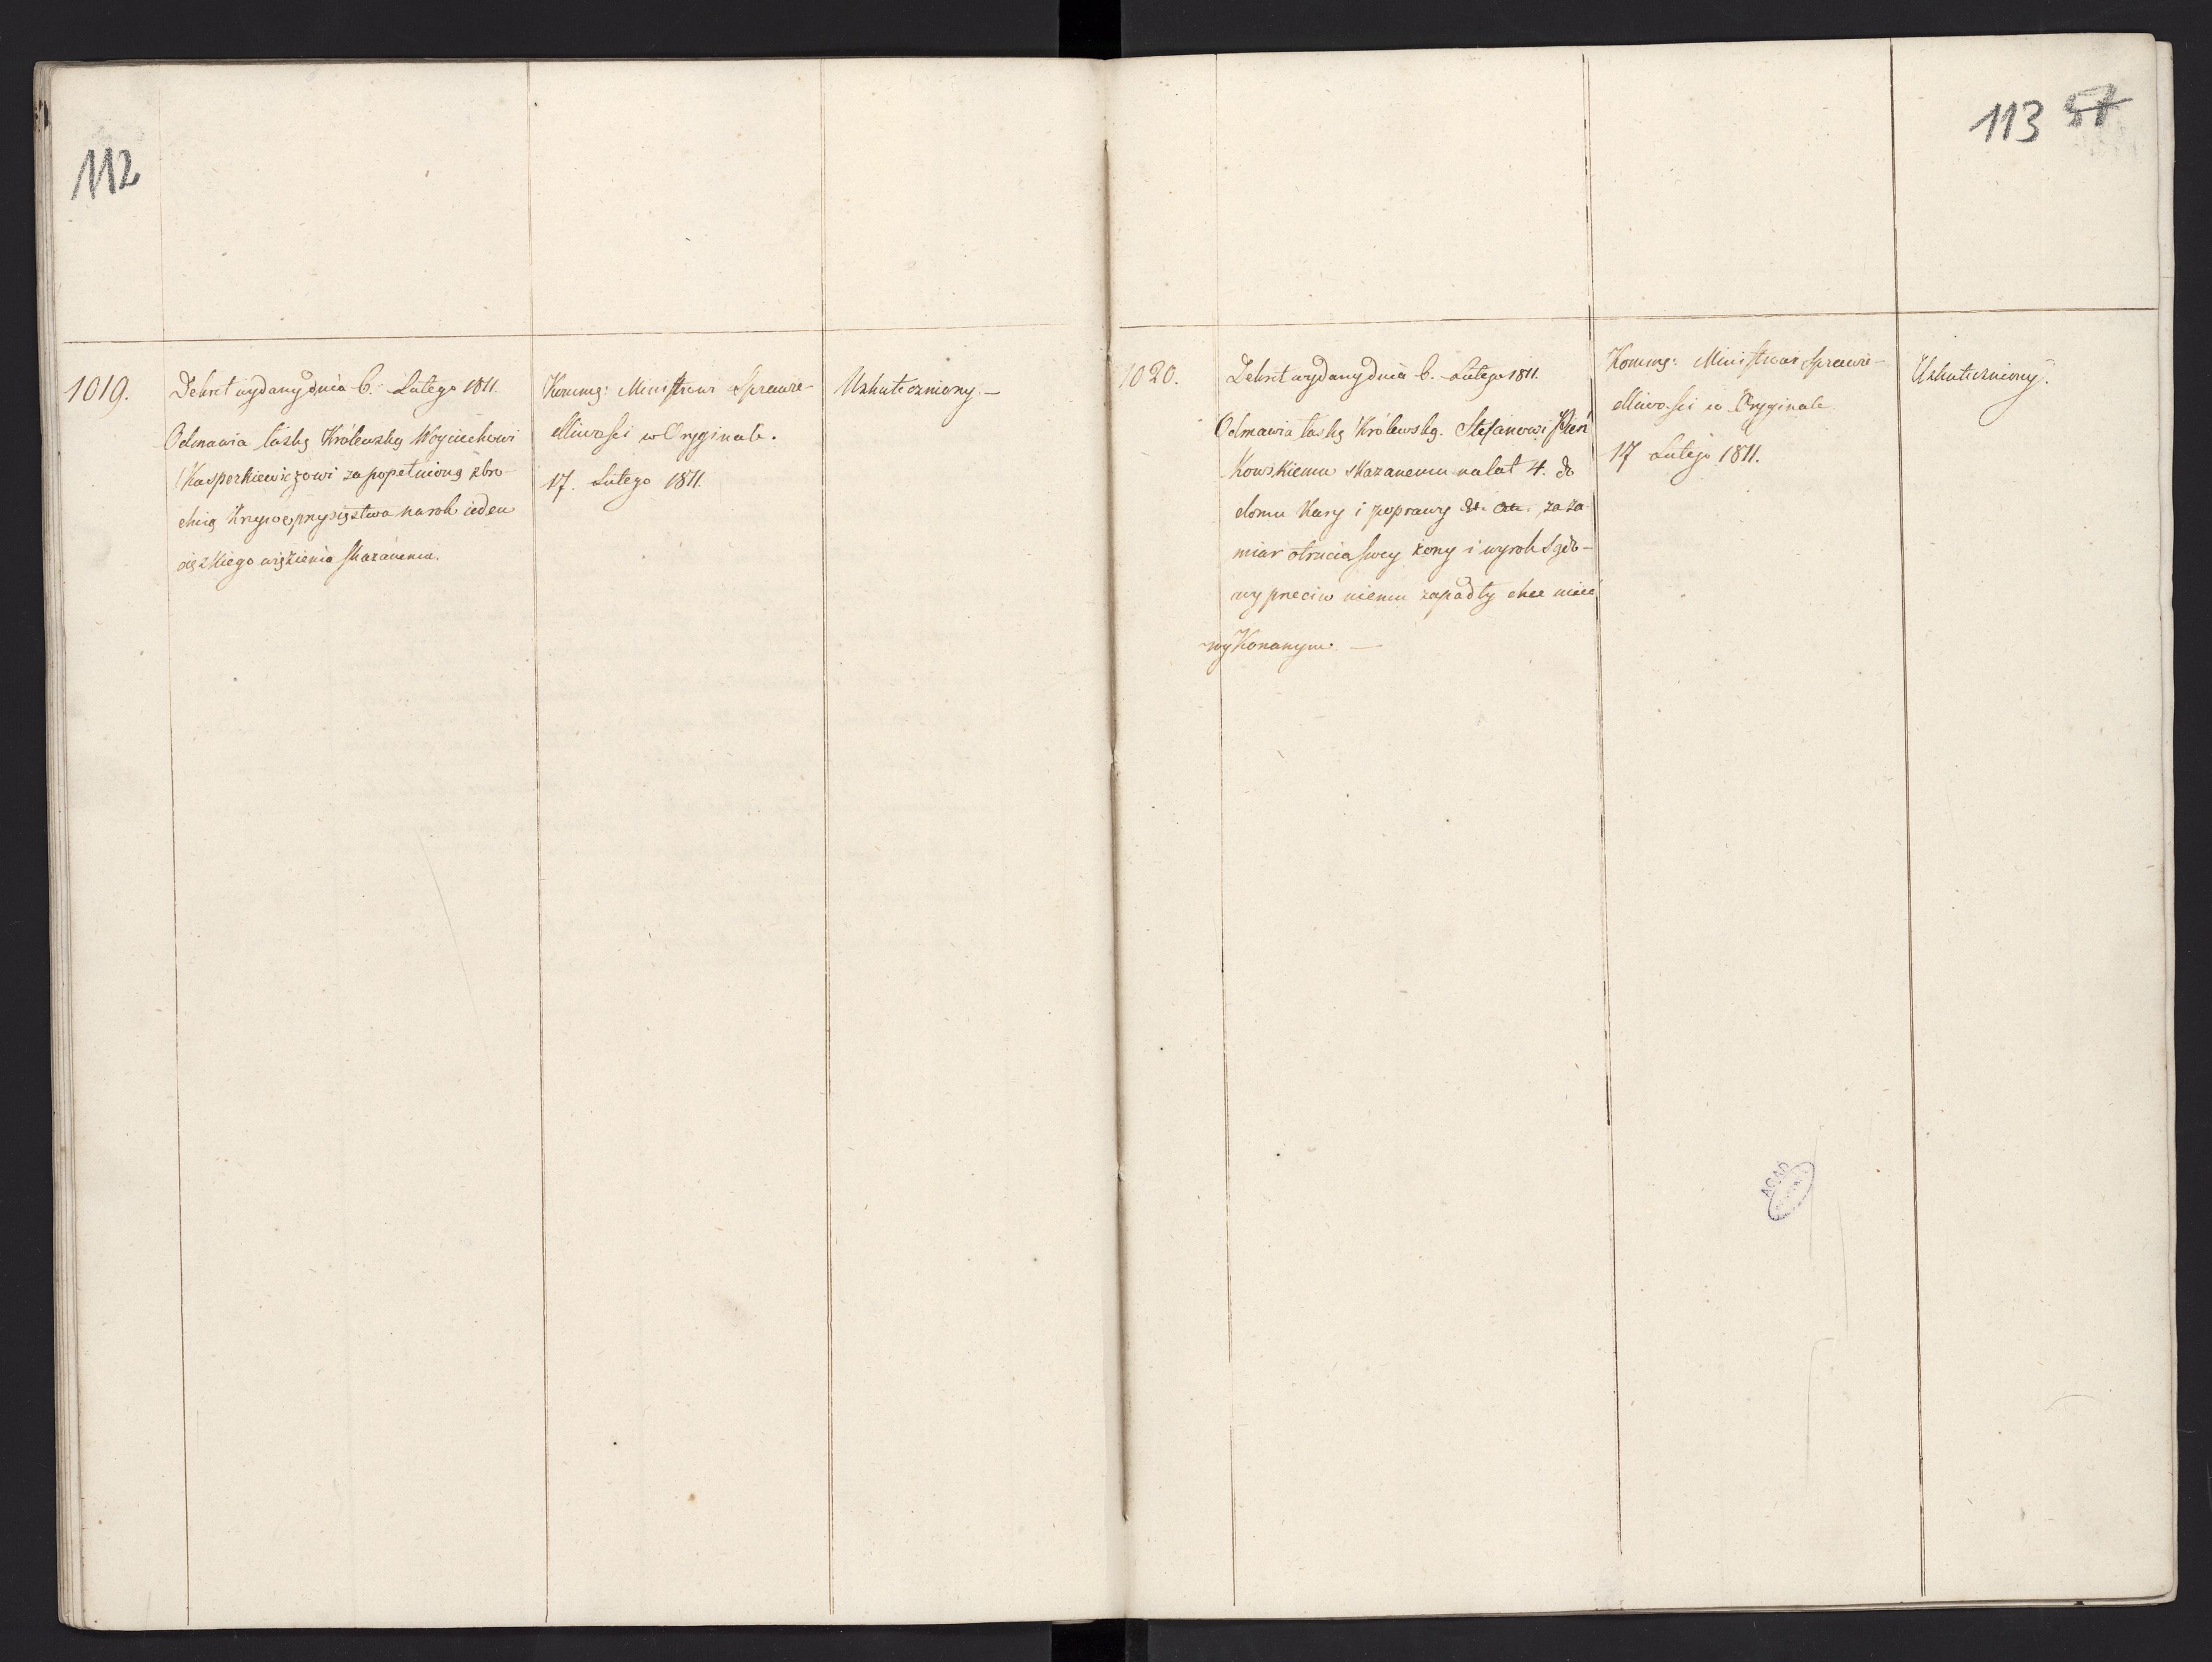 112
1019.
Dekret wydany dnia 6. Lutego 1811.
Odmawia łaskę Królewską Woyciechowi
Kasperkiewiczowi za popełnioną zbro-
dnią Krzywoprzysięstwa na rok ieden
ciężkiego więzienia skazanemu.
Kommg: Ministrowi Sprawie-
dliwości w Oryginale.
17. Lutego 1811.
Uskuteczniony. —
113 57
1020.
Dekret wydany dnia 6. Lutego 1811.
Odmawia łaskę Królewską. Stefanowi Pień
kowskiemu skazanemu na lat 4. do
domu kary i poprawy za za-
miar otrucia swey żony i wyrok Sądo-
wy przeciw niemu zapadły chce mieć
wykonanym. —
Kommg: Ministrowi Sprawie-
dliwości w Oryginale
17 Lutego 1811.
Uskuteczniony.
AGAD